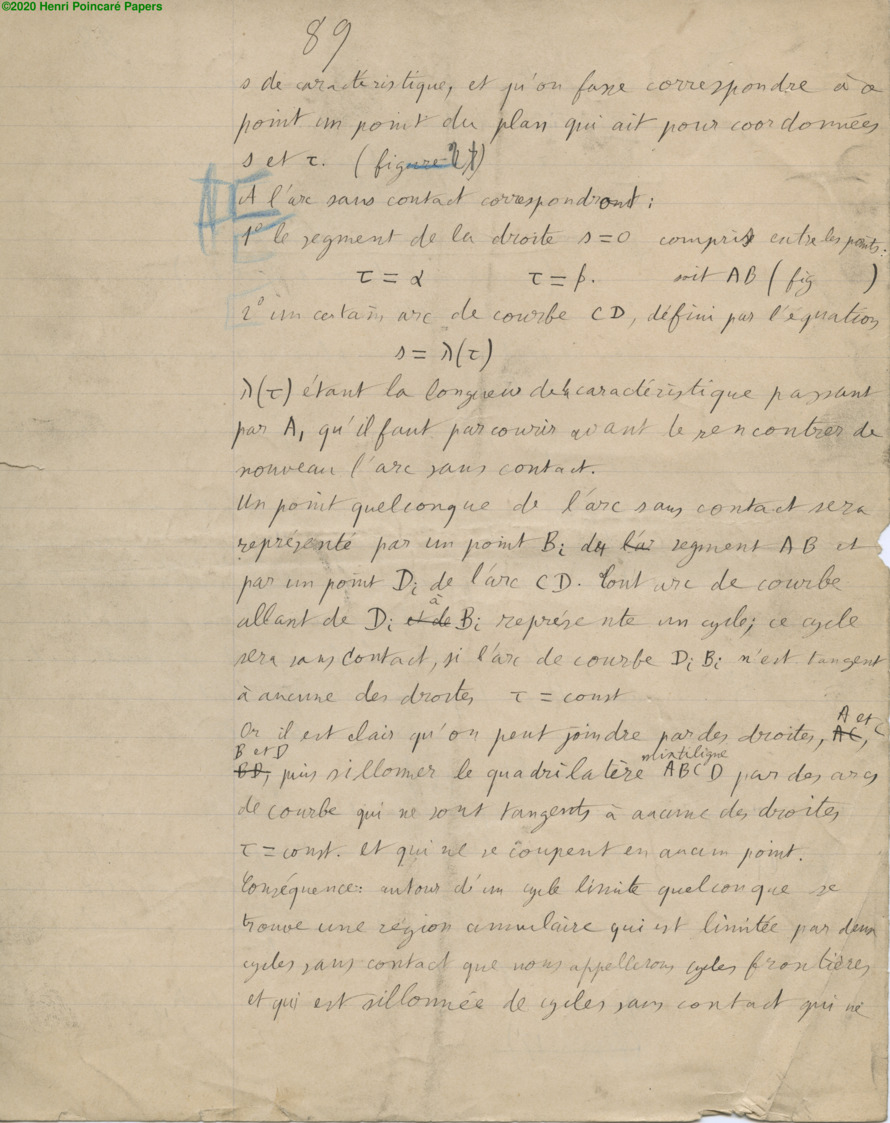 ©2020 Henri Poincaré Papers
89
s de caractéristique, et qu'on fasse correspondre à ce
point un point du plan qui ait pour coordonnées
s et τ. (figure
A l'arc sans contact correspondront :
1° le segment de la droite s = 0 compris entre les points :
τ = α τ = β. soit AB (fig )
2° un certain arc de courbe CD, défini par l'équation
s = λ(τ)
λ(τ) étant la longueur de la caractéristique passant
par A, qu'il faut parcourir avant de rencontrer de
nouveau l'arc sans contact.
Un point quelconque de l'arc sans contact sera
représenté par un point Bi du l'ar segment AB et
par un point Di de l'arc CD. Tout arc de courbe
allant de Di et de à Bi représente un cycle; ce cycle
sera sans contact, si l'arc de courbe Di Bi n'est tangent
à aucune des droites τ = const
Or il est clair qu'on peut joindre par des droites, AC, A et C
BD, B et D puis sillonner le quadrilatère mixtiligne ABCD par des arcs
de courbe qui ne sont tangents à aucune des droites
τ = const. et qui ne se coupent en aucun point.
Conséquence: autour d'un cycle limite quelconque se
trouve une région annulaire qui est limitée par deux
cycles sans contact que nous appellerons cycles frontières
et qui est sillonnée de cycles sans contact qui ne